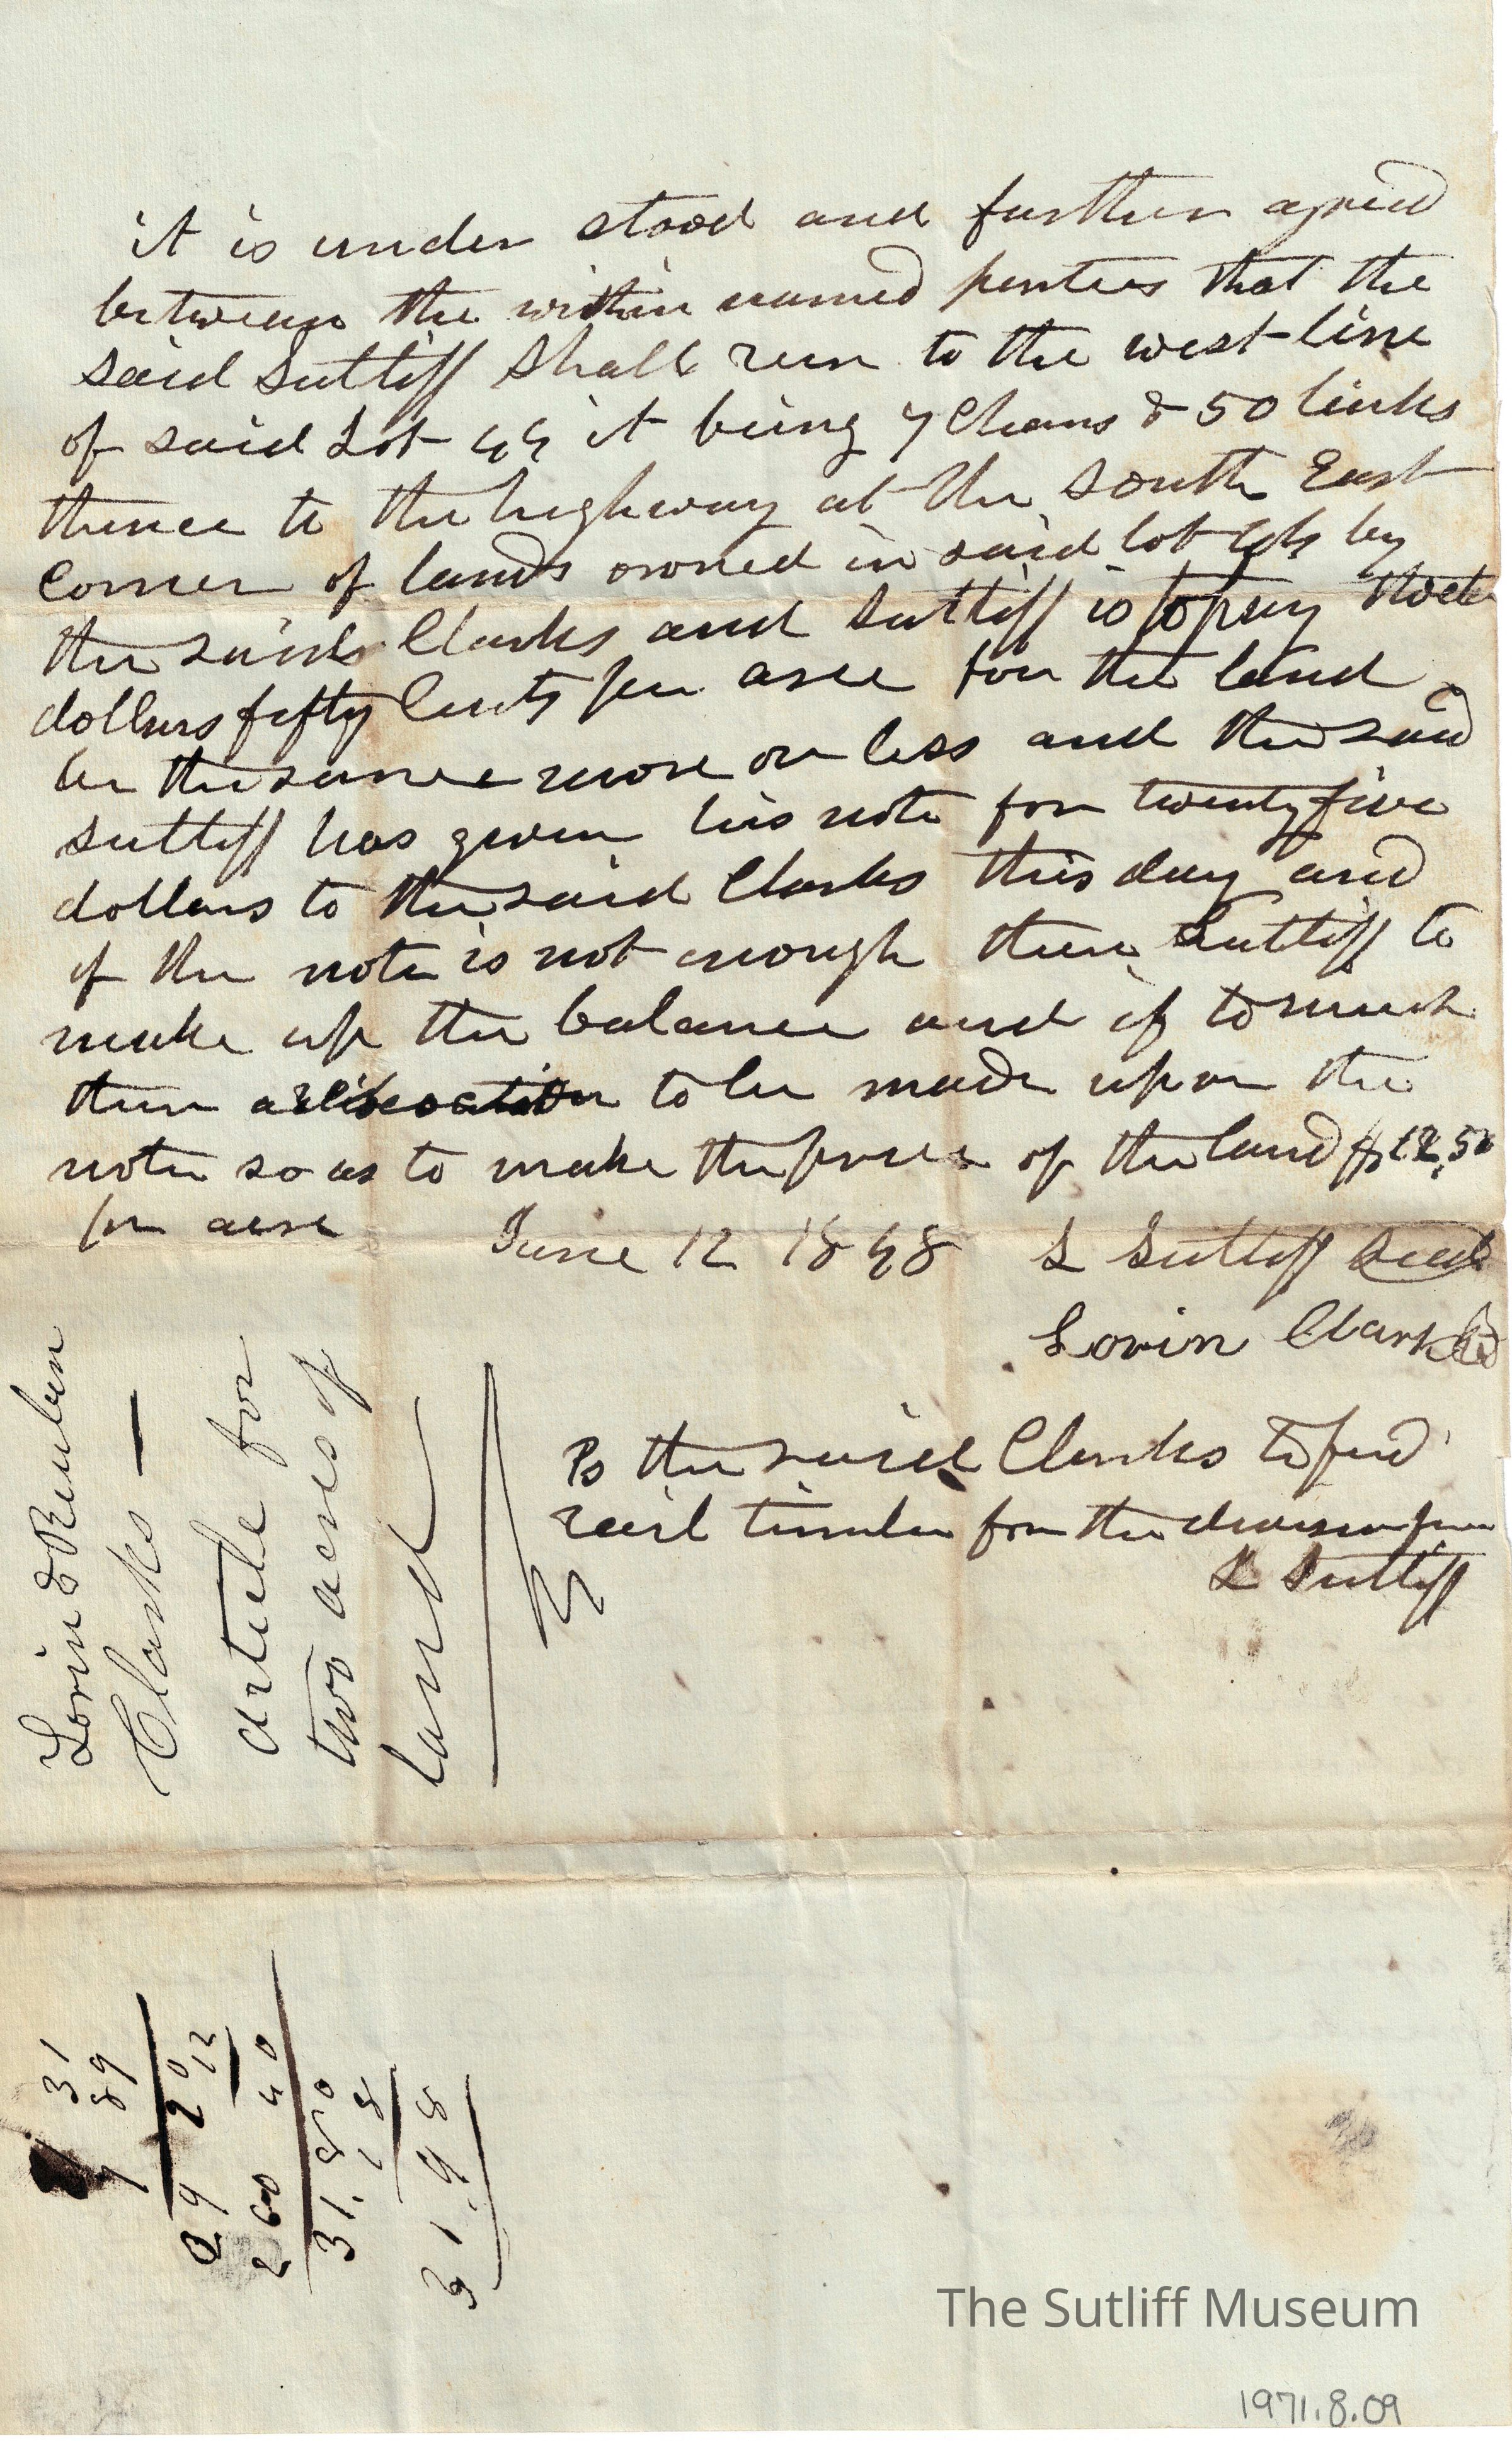 it is under stood and further agreed
between the within named parties that the
said Sutliff Shall run to the west line
of said Lot 44 it being 7 Chans & 50 links
thence to the highway at the South East
Corner of lands owned in said lot by
the said Clarks and Sutliff is to pay
dollars fifty Cents per acre for the land
be the same more or less and the said
Sutliff has given his note for twenty five
dollars to the said Clarks this day and
if the note is not enough then Sutliff to
make up the balance and if to much
then a to be made upon the
note so as to make the price of the land $12,50
per acre June 12 1848 L Sutliff Seal
Lorin Clark
Ps the said Clarks to find
rail timber for the
L Sutliff
Lorin & Reuben
Clarks —
article for
two acres of
land
31
89
29 20
12
260 40
31.80
18
31.98
The Sutliff Museum
1971.8.09